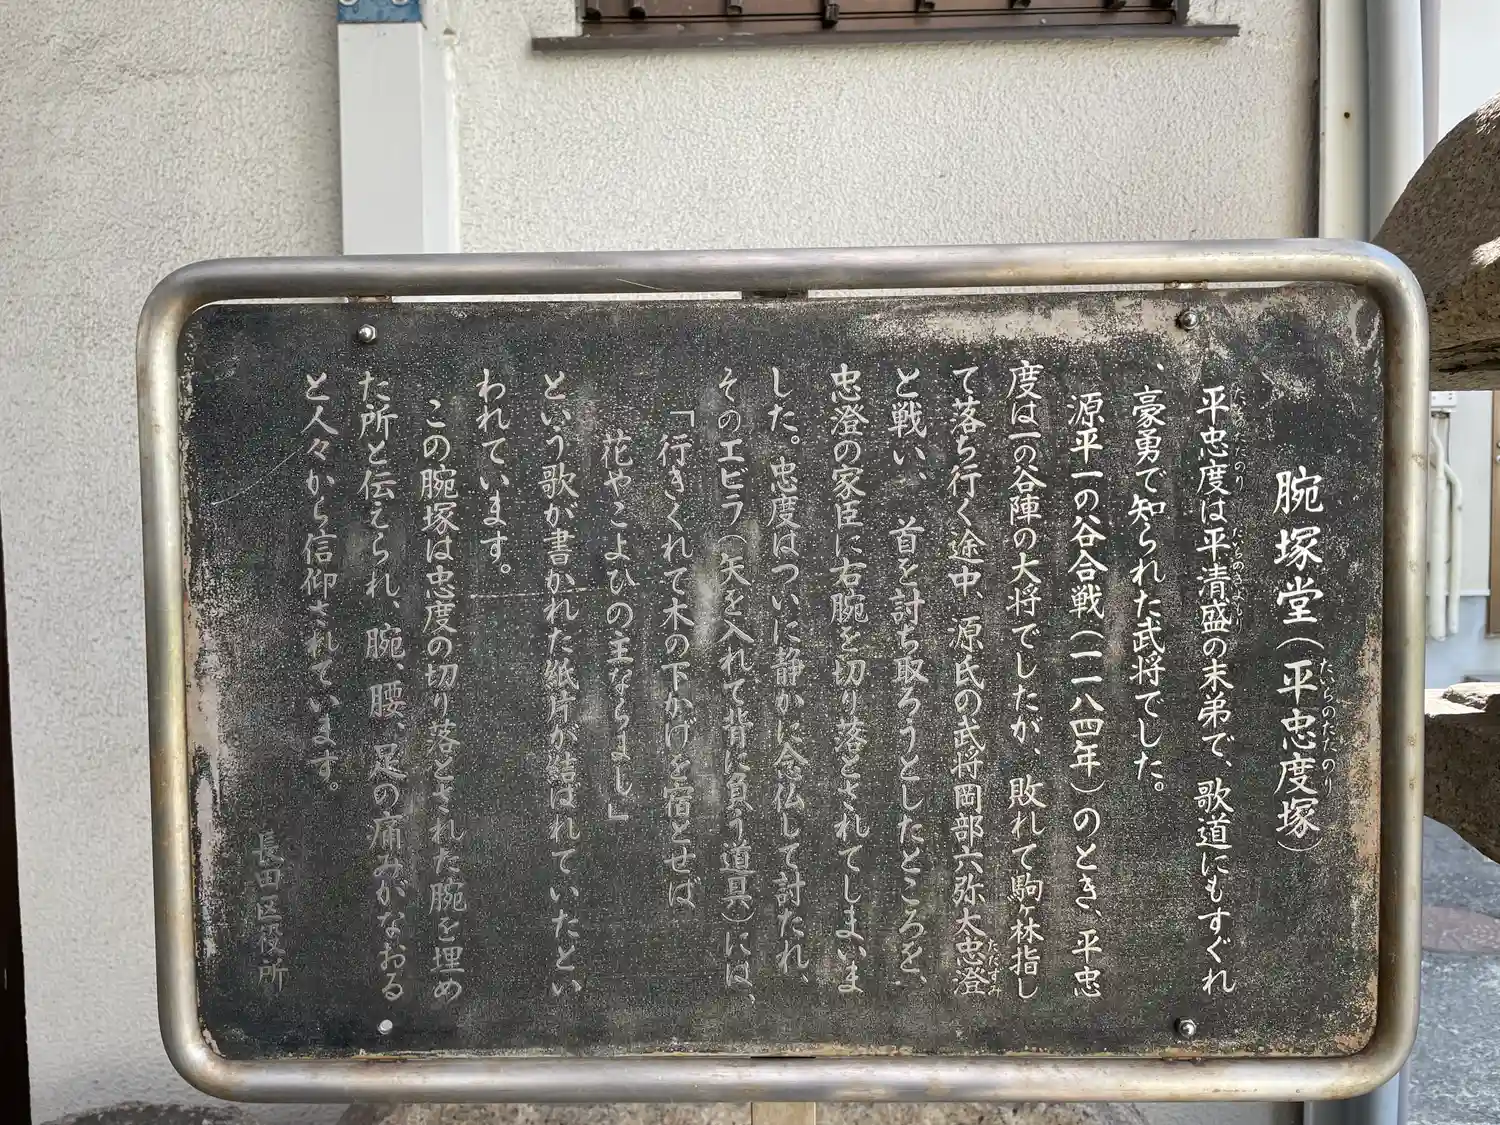 腕塚堂（平忠度塚）
たいらのただのり
平忠度は平清盛の末弟で、歌道にもすぐれ
、豪勇で知られた武将でした。
源平一の谷合戦（一一八四年）のとき、平忠
度は一の谷陣の大将でしたが、敗れて駒ヶ林指し
て落ち行く途中、源氏の武将岡部六弥太忠澄
ただすみ
と戦い、首を討ち取ろうとしたところを、
忠澄の家臣に右腕を切り落とされてしまいま
した。忠度はついに静かに念仏して討たれ、
そのエビラ（矢を入れて背に負う道具）には、
「行きくれて木の下かげを宿とせば
花やこよひの主ならまし」
という歌が書かれた紙片が結ばれていたとい
われています。
この腕塚は忠度の切り落とされた腕を埋め
た所と伝えられ、腕、腰、足の痛みがなおる
と人々から信仰されています。
長田区役所